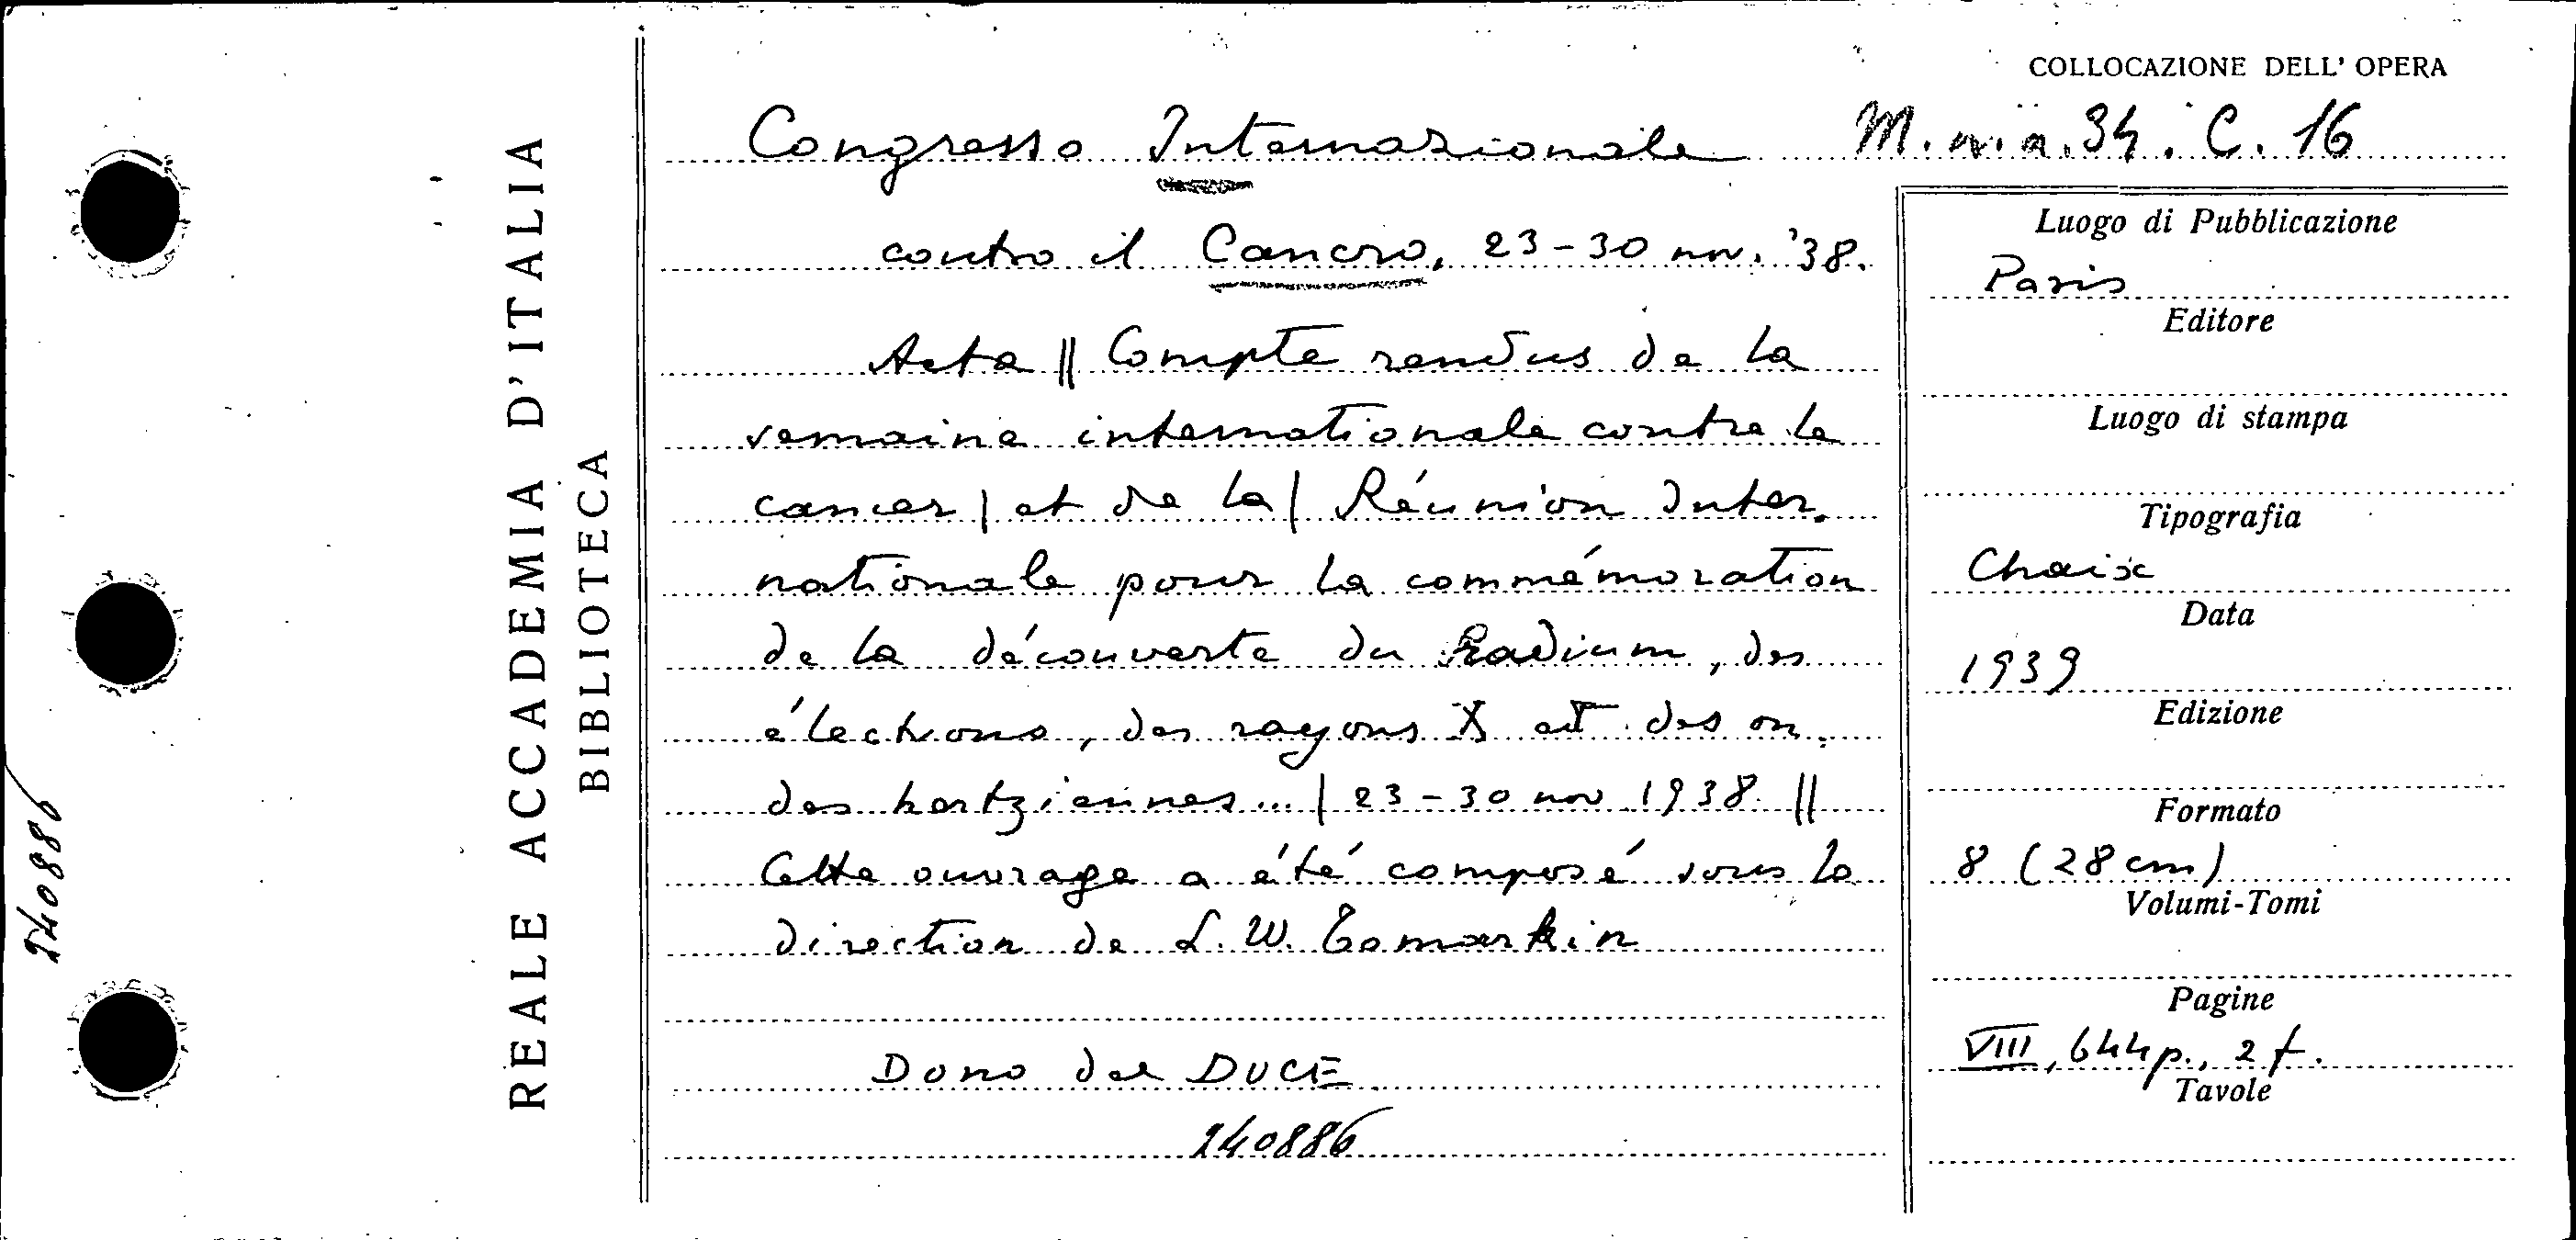 COLLOCAZIONE DELL' OPERA
M. n. a. 34. C. 16
REALE ACCADEMIA D'ITALIA
BIBLIOTECA
240886
Congresso Internazionale
contro il Cancro, 23-30 nov. '38.
Acta || Compte rendus de la
semaine internationale contre le
cancer | et de la | Réunion Inter-
nationale pour la commémoration
de la découverte du Radium, des
électrons, des rayons X et des on-
des hertziennes... | 23-30 nov 1938 ||
Cette ouvrage a été composé sous la
direction de L. W. Tomarkin
Dono del DUCE
240886
Luogo di Pubblicazione
Paris
Editore
Luogo di stampa
Tipografia
Chaix
Data
1939
Edizione
Formato
8 (28 cm)
Volumi-Tomi
Pagine
VIII, 644 p., 2 f.
Tavole